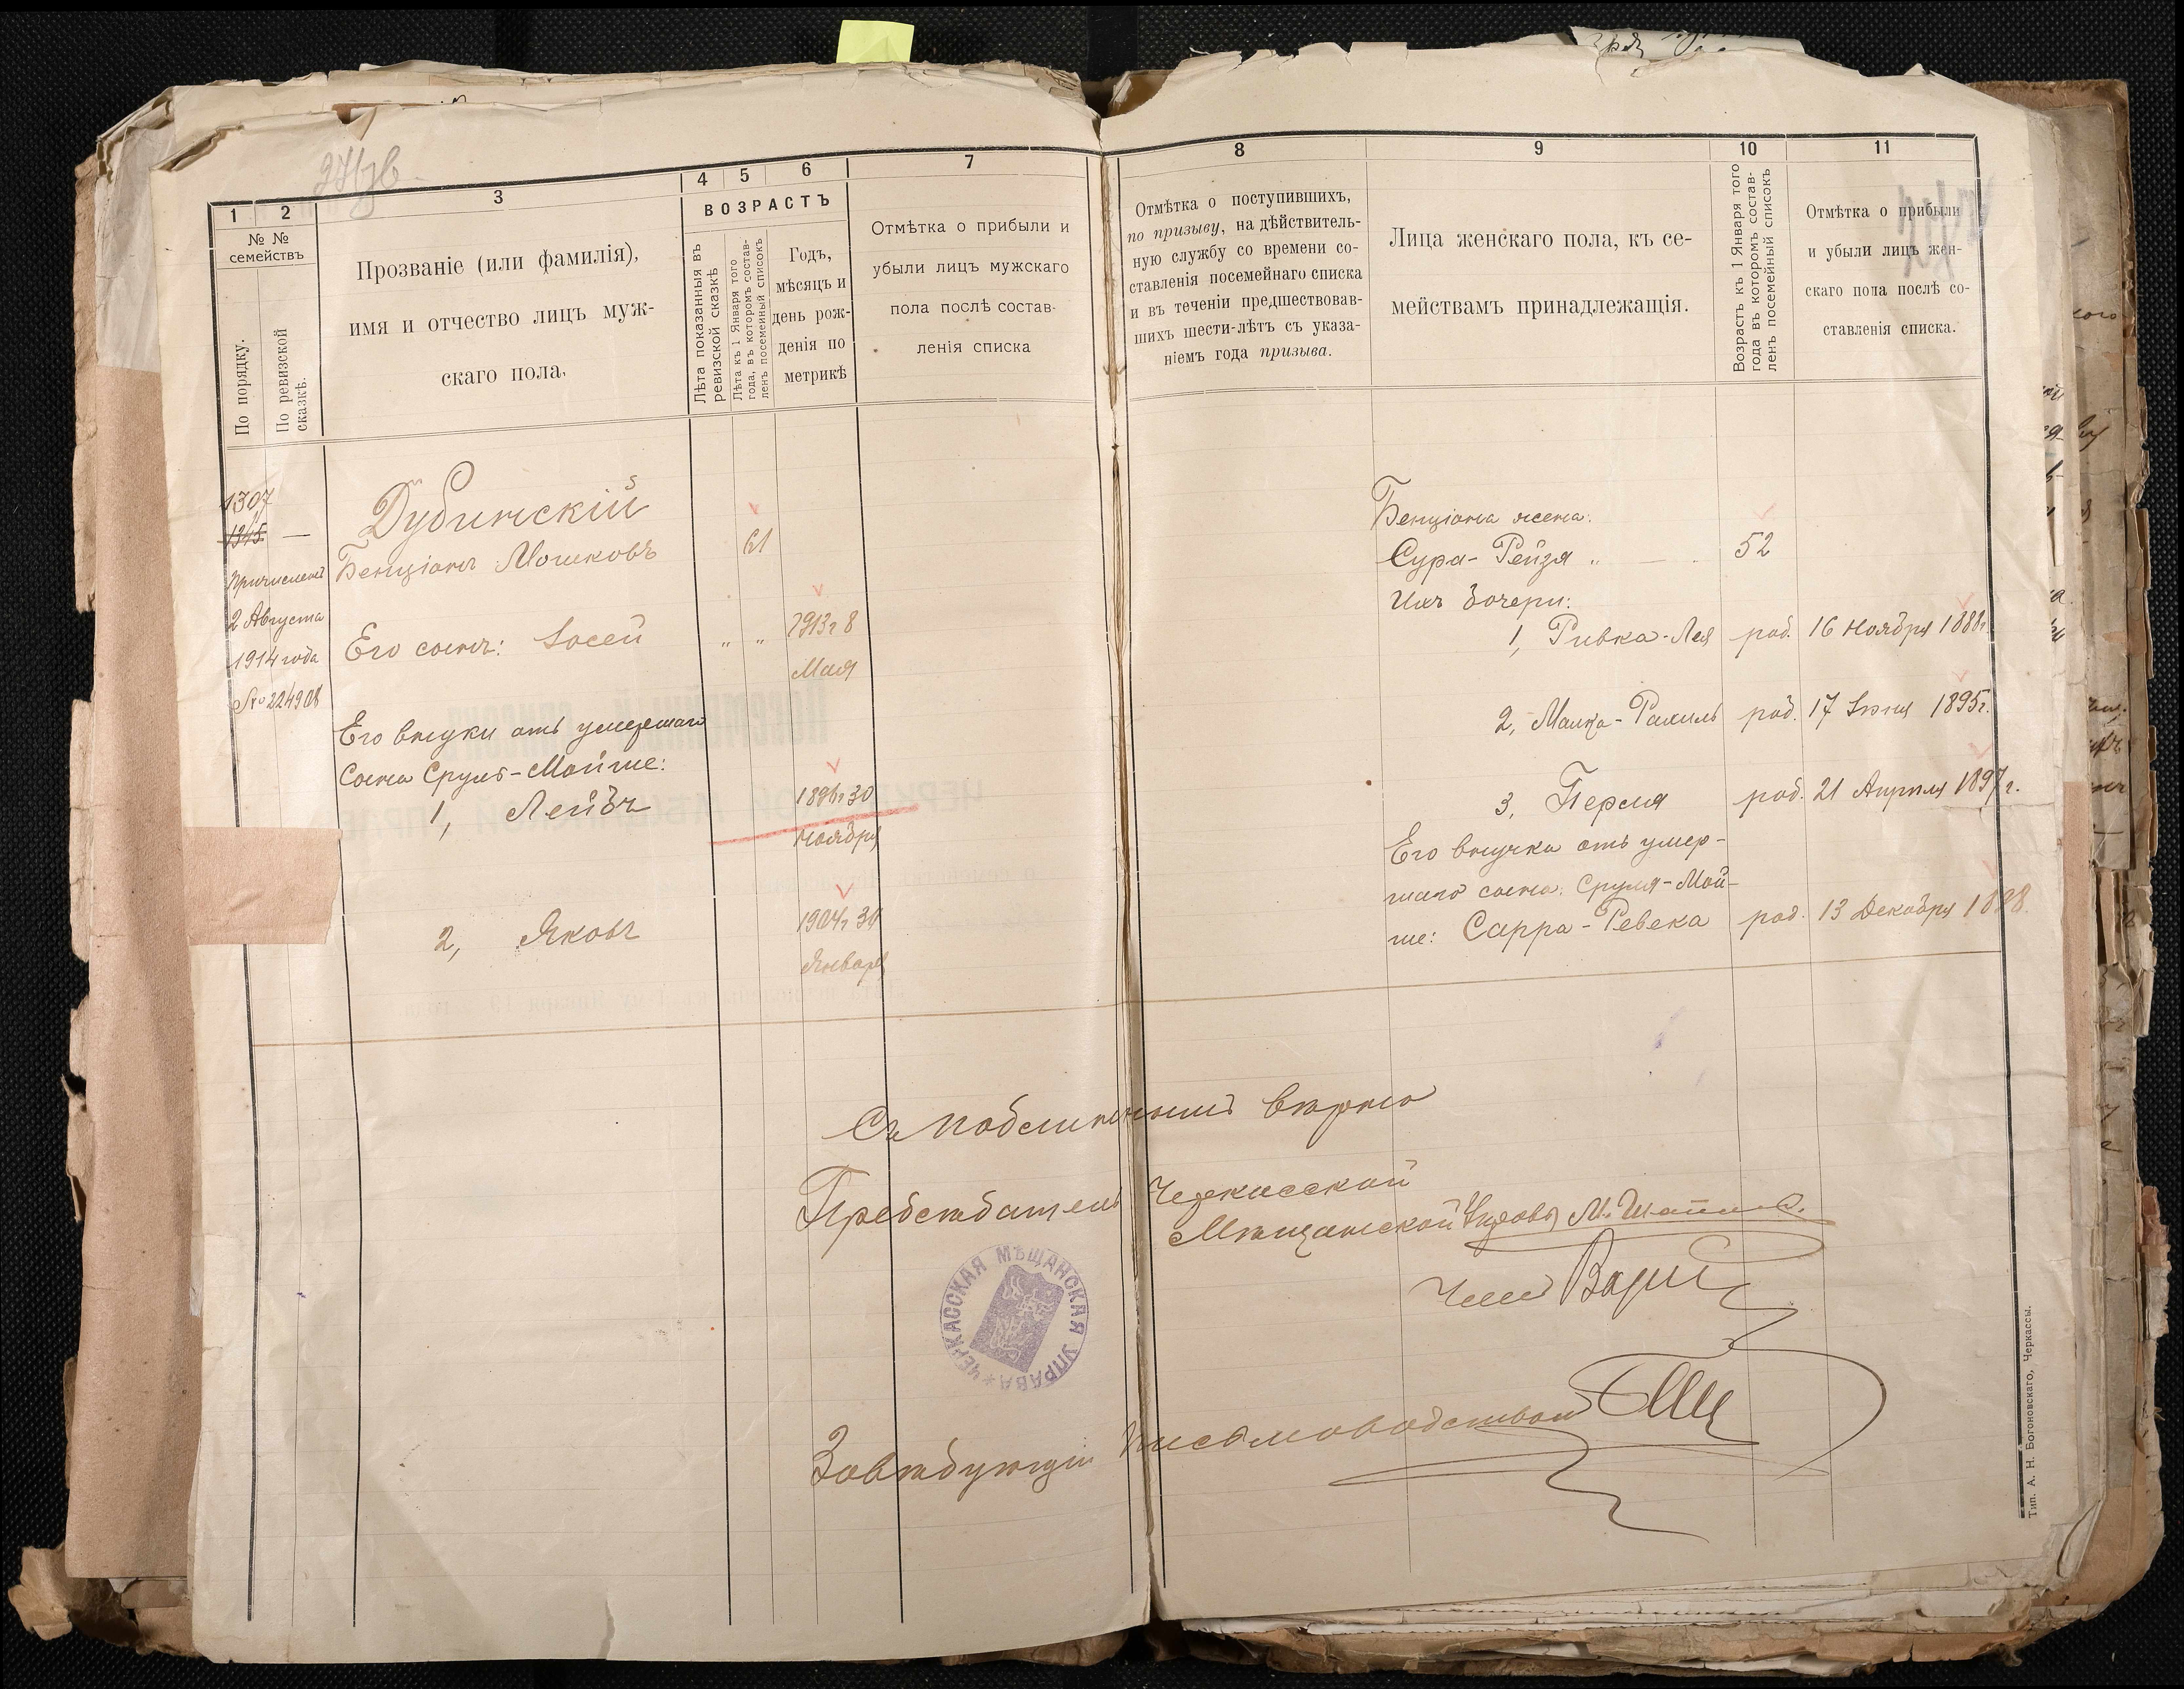 1
2
3
4
5
6
7
№ №
семействъ
По порядку.
По ревизской
сказкѣ.
Прозваніе (или фамилія),
имя и отчество лицъ муж-
скаго пола.
ВОЗРАСТЪ
Лѣта показанныя въ
ревизской сказкѣ
Лѣта къ 1 Января того
года, въ которомъ состав-
ленъ посемейный списокъ
Годъ,
мѣсяцъ и
день рож-
денія по
метрикѣ
Отмѣтка о прибыли и
убыли лицъ мужскаго
пола послѣ состав-
ленія списка
1307
1345 —
Причислены
2 Августа
1914 года
№ 224908
Дубинскій
Бенціонъ Мошковъ
61
Его сынъ: Іосей
" "
1913г 8
Мая
Его внуки отъ умершаго
сына Сруль-Мойше:
1, Лейбъ
1896г 30
Ноября
2, Яковъ
1904г 30
Января
8
9
10
11
Отмѣтка о поступившихъ,
по призыву, на дѣйствитель-
ную службу со времени со-
ставленія посемейнаго списка
и въ теченіи предшествовав-
шихъ шести-лѣтъ съ указа-
ніемъ года призыва.
Лица женскаго пола, къ се-
мействамъ принадлежащія.
Возрастъ къ 1 Января того
года въ которомъ состав-
ленъ посемейный списокъ
Отмѣтка о прибыли
и убыли лицъ жен-
скаго пола послѣ со-
ставленія списка.
Бенціона жена:
Сура-Рейзя " — 52
Ихъ дочери:
1, Ривка-Лея род. 16 Ноября 1888г.
2, Малка-Рахиль род. 17 Іюня 1895г.
3, Перля род. 21 Апрѣля 1897г.
Его внучка отъ умер-
шаго сына: Сруля-Мой-
ше: Сарра-Ревека род. 13 Декабря 1898
Съ подлиннымъ вѣрно
Предсѣдатель Черкасской
Мѣщанской Управы М.
Членъ
ЧЕРКАССКАЯ МѢЩАНСКАЯ УПРАВА
Завѣдующій письмоводствомъ
Тип. А. Н. Богоновскаго, Черкассы.